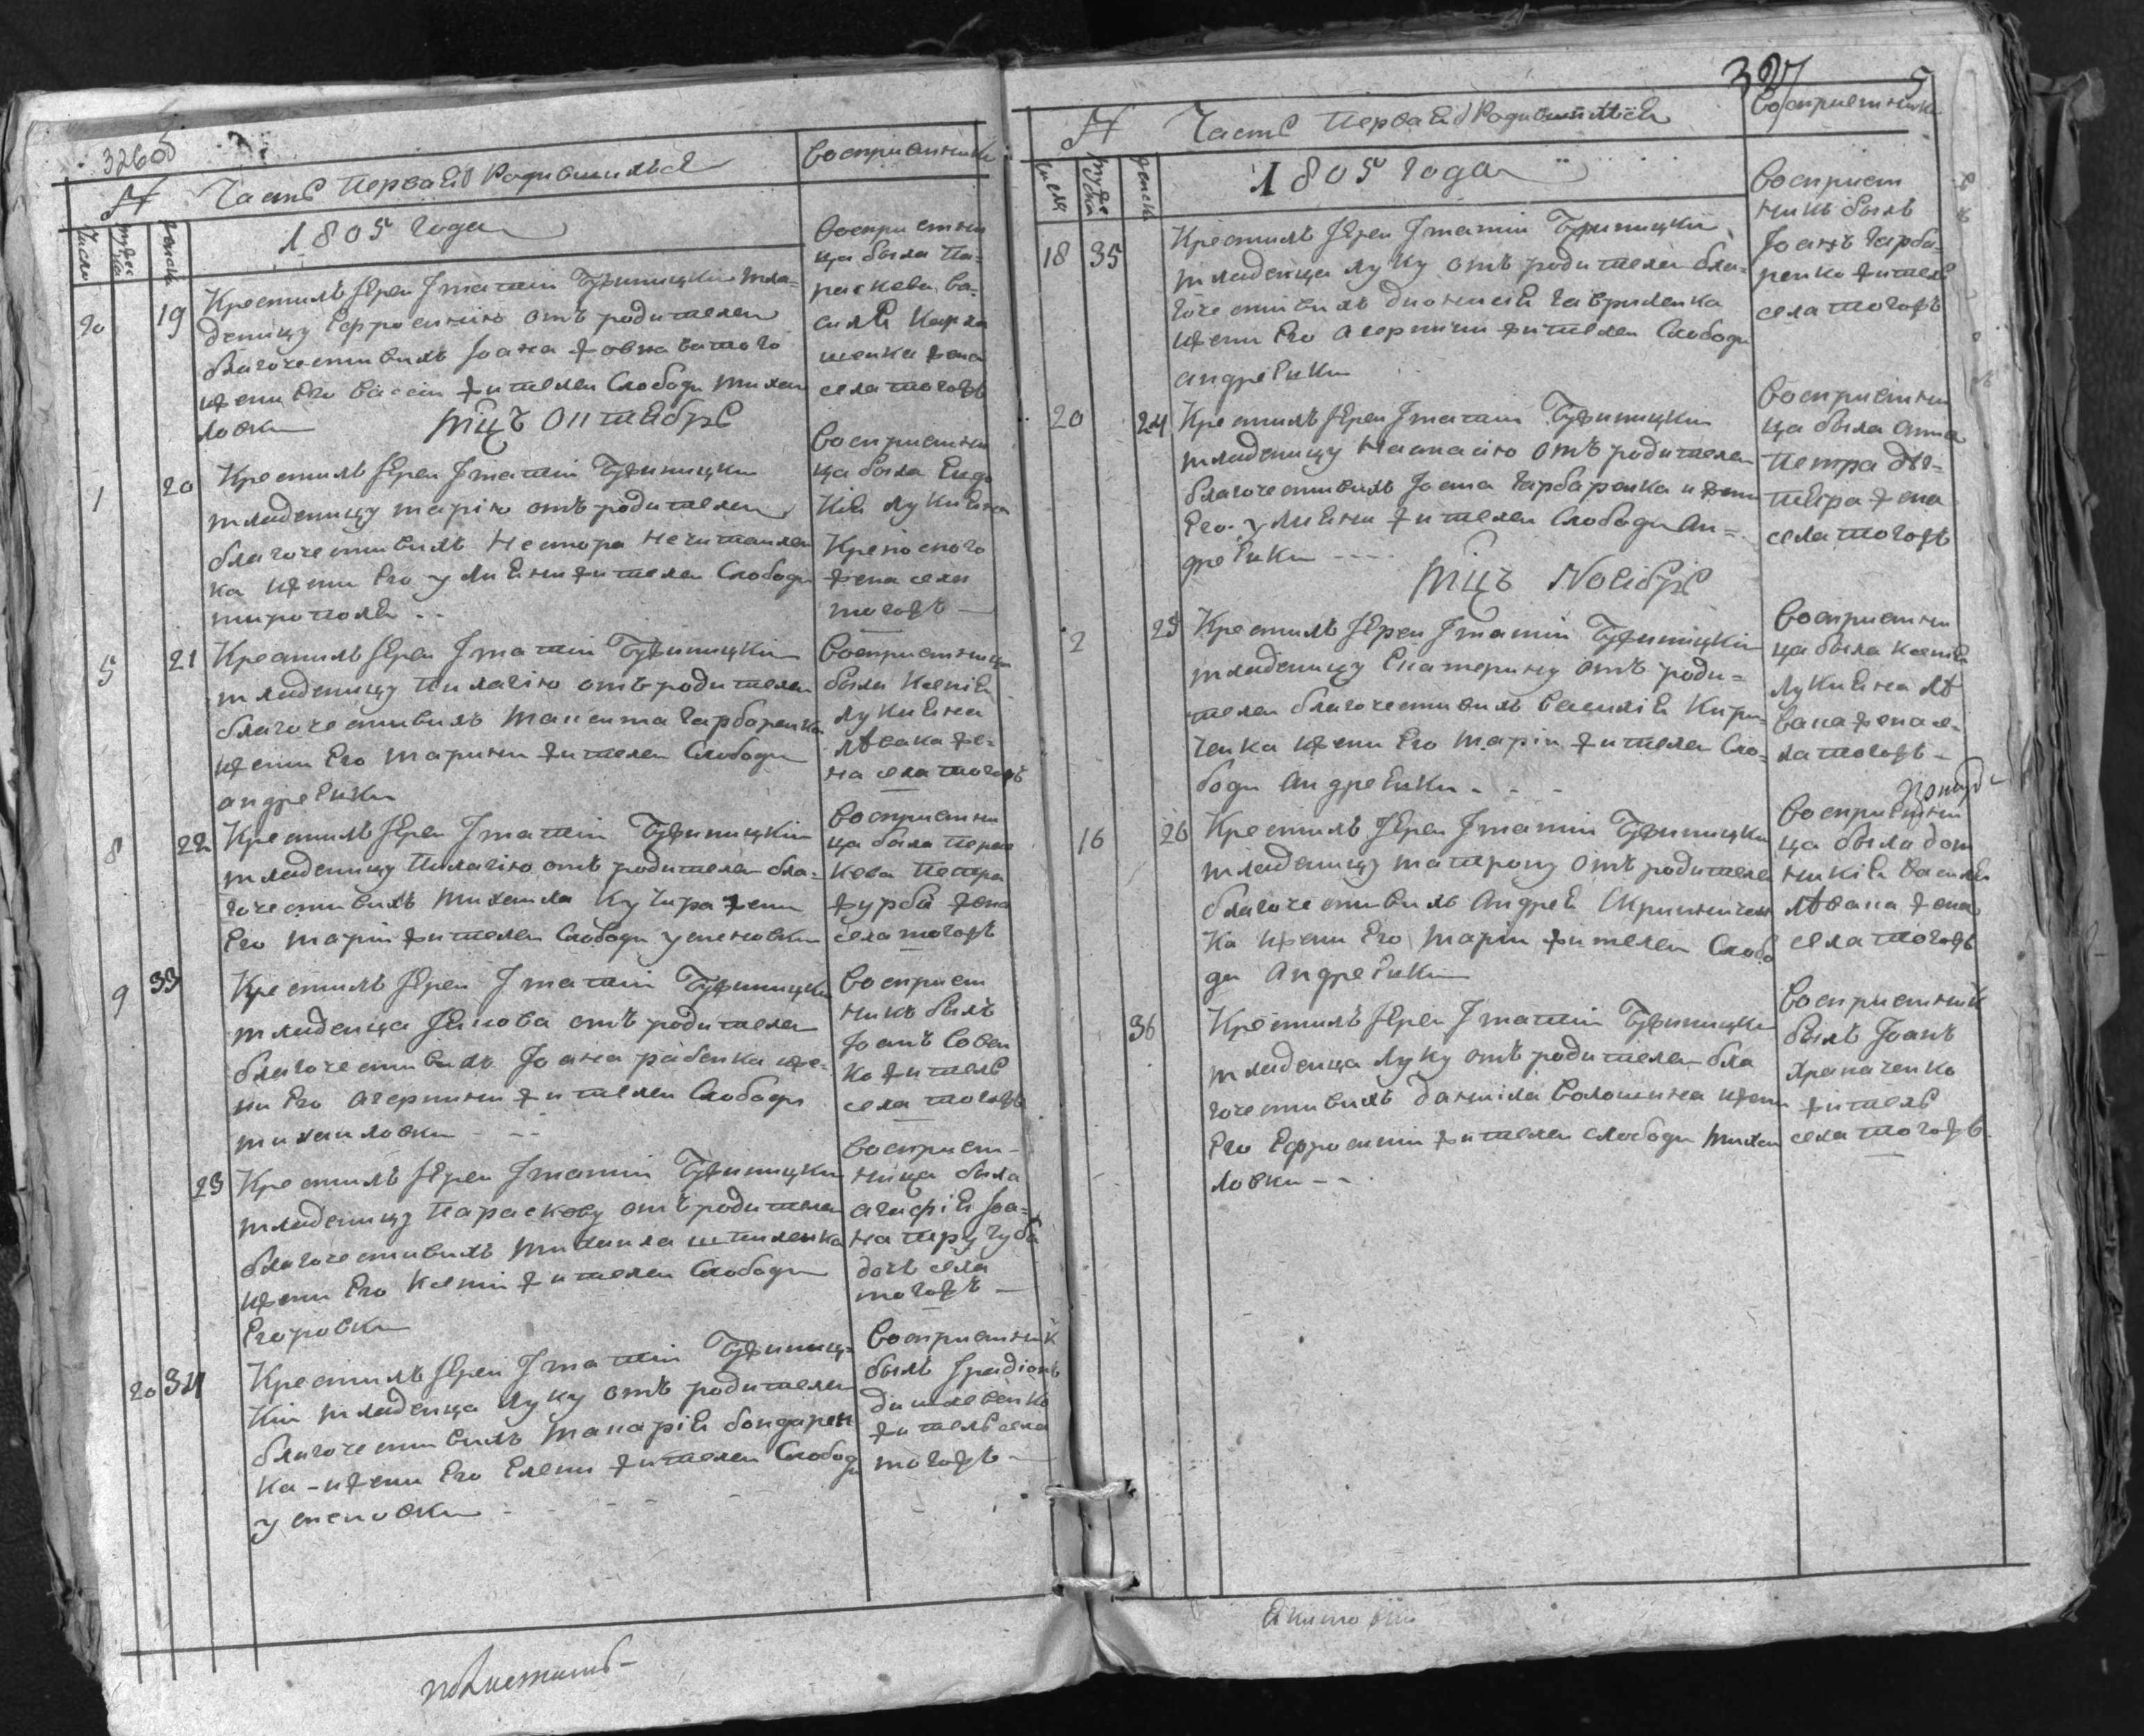 326об
№ Часть Перваѧ о Родившихъсѧ
воспріемники
число
мужеска
женска
1805 года
20 19 Крестилъ Іерей Игнатій Бужиницкій мла=
деницу Ефросинію отъ родителей
благочестивихъ Іоана Жовнаватого
и жени Его Васси жителей Слободи Михаи
ловки
воспріемни
ца была Па=
раскева Ва=
силіѧ Карпа
шенка жена
села тогожъ
Мцъ Октѧбрь
1 20 Крестилъ Іерей Игнатій Бужиницкій
младеницу Марію отъ родителей
благочестивихъ Нестора Нечитаилен
ка и жени Его Улиѧни жителей Слободи
Мирополѧ
воспріемни
ца была Евдо
кіѧ Лукиѧна
Крепоского
жена села
тогожъ
5 21 Крестилъ Іерей Игнатій Бужиницкій
младеницу Пилагію отъ родителей
благочестивихъ Максима Гарбаренка
и жени Его Марини жителей Слободи
Андреѣвки
воспріемница
была Ксеніѧ
Лукиѧна
Лѣвака же=
на села тогожъ
8 22 Крестилъ Іерей Игнатій Бужиницкій
младеницу Пилагію отъ родителей бла=
гочестивихъ Михаила Кучира жени
Его Маріи жителей Слободи Успеновки
воспріемни
ца была Парас
кева Петра
Журба жена
села тогожъ
9 33 Крестилъ Іерей Игнатій Бужиницкій
младенца Іѧкова отъ родителей
благочестивихъ Іоана рабенка и же=
ни Его Агерпини жителей Слободи
Михаиловки
воспріем
никъ былъ
Іоанъ Совен
ко житель
села тогожъ
23 Крестилъ Іерей Игнатій Бужиницкій
младеницу Параскеву отъ родителей
благочестивихъ Михаила Штиленка
и жени Его Ксеніи жителей Слободи
Егоровки
воспріем=
ница была
Агафіѧ Іоа=
на
дочь села
тогожъ
20 34 Крестилъ Іерей Игнатій Бужиниц=
кій младенца Луку отъ родителей
благочестивихъ Макаріѧ Бондарен
ка и жени Его Елени жителей Слободи
Успеновки
воспріемникъ
былъ
житель села
тогожъ
327
5
№ Часть Перваѧ о Родившихсѧ
воспріемники
числа
мужеска
женск
1805 года
18 35 Крестилъ Іерей Игнатій Бужиницкій
младенца Луку отъ родителей бла=
гочестивихъ Дионисіѧ Гавриленка
и жени Его Агерпини жителей Слободи
Андреѣвки
воспріем
никъ былъ
Іоанъ Гарба=
ренко житель
села тогожъ
20 24 Крестилъ Іерей Игнатій Бужиницкій
младеницу Настасію отъ родителей
благочестивихъ Іоана Гарбаренка и жени
Его Улиѧни жителей Слободи Ан=
дреѣвки
воспріемни
ца была Анна
Петра
жена
села тогожъ
Мцъ Ноѧбрь
2 25 Крестилъ Іерей Игнатій Бужиницкій
младеницу Екатерину отъ роди=
телей благочестивихъ Василіѧ Кири=
ченка и жени Его Маріи жителей Сло=
боди Андреѣвки
воспріемни
ца была Ксеніѧ
Лукиѧна Лѣ
вака жена се=
ла тогожъ
16 26 Крестилъ Іерей Игнатій Бужиницкій
младеницу Матрону отъ родителей
благочестивихъ Андреѧ Скрипничен
ка и жени Его Маріи жителей Слобо
ди Андреѣвки
воспріемни
ца была Дом
никіѧ Василіѧ
Лѣвака жена
села тогожъ
36 Крестилъ Іерей Игнатій Бужиницкій
младенца Луку отъ родителей бла
гочестивихъ Даниіла Волошина и жени
Его Ефросиніи жителей слободи Михаи
ловки
воспріемникъ
былъ Іоанъ
Храпаченко
житель
села тогожъ